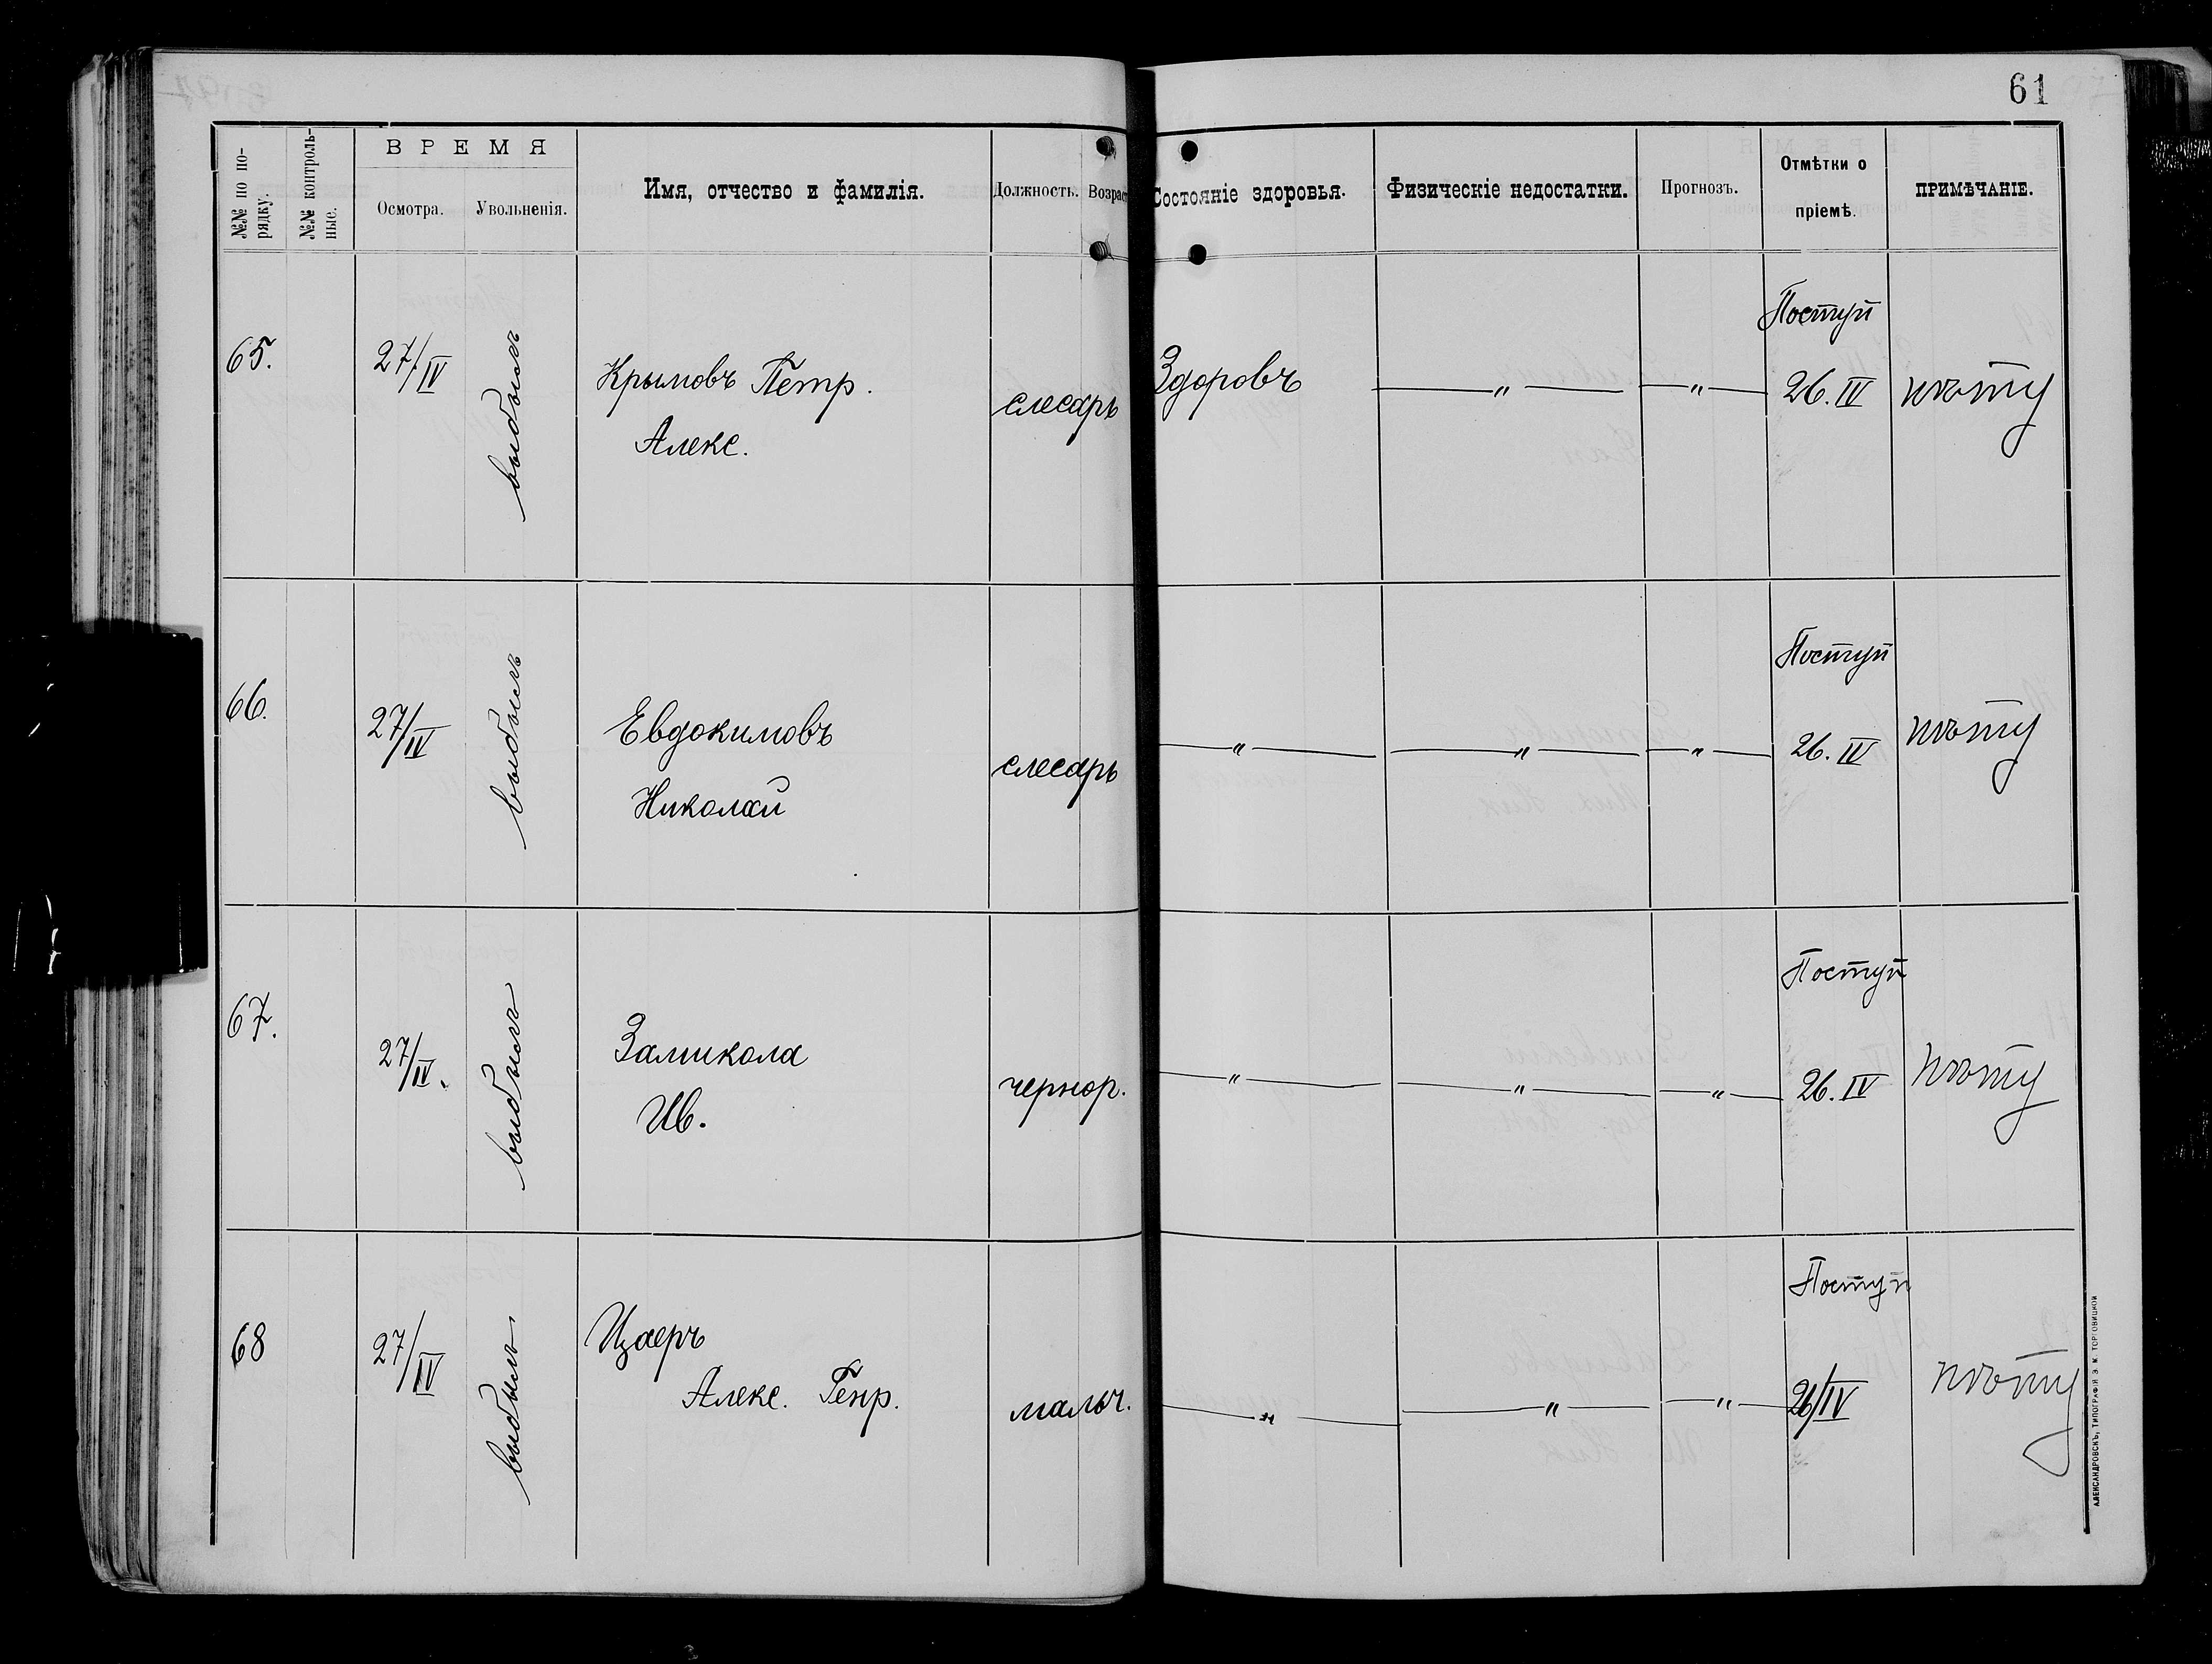 61
№№ по по-
рядку.
№№ контроль-
ные.
ВРЕМЯ
Осмотра.
Увольненія.
Имя, отчество и фамилія.
Должность.
Возраст
Состояніе здоровья.
Физическіе недостатки.
Прогнозъ.
Отмѣтки о
пріемѣ.
ПРИМѢЧАНІЕ.
65.
27/IV
выбылъ
Крымовъ Петр.
Алекс.
слесарь
Здоровъ
— " —
— " —
Поступ
26. IV
нѣту
66.
27/IV
выбылъ
Евдокимовъ
Николай
слесарь
— " —
— " —
— " —
Поступ
26. IV
нѣту
67.
27/IV.
выбылъ
Замикола
Ив.
чернор.
— " —
— " —
— " —
Поступ
26. IV
нѣту
68
27/IV
выбылъ
Алекс. Генр.
мальч.
— " —
— " —
— " —
Поступ
26/IV
нѣту
АЛЕКСАНДРОВСКЪ, ТИПОГРАФІЯ Э. М. ТОРГОВИЦКОЙ